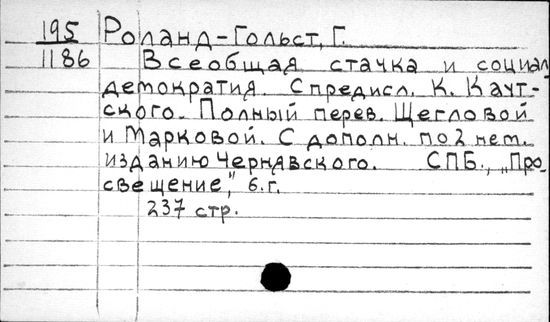 195 Роланд-Гольст, Г.
1186 Всеобщая стачка и социал
демократия. С предисл. К. Каут-
ского. Полный перев. Щегловой
и Марковой. С дополн. по 2 нем.
изданию Чернявского. СПБ., „Про
свещение", б.г.
237 стр.